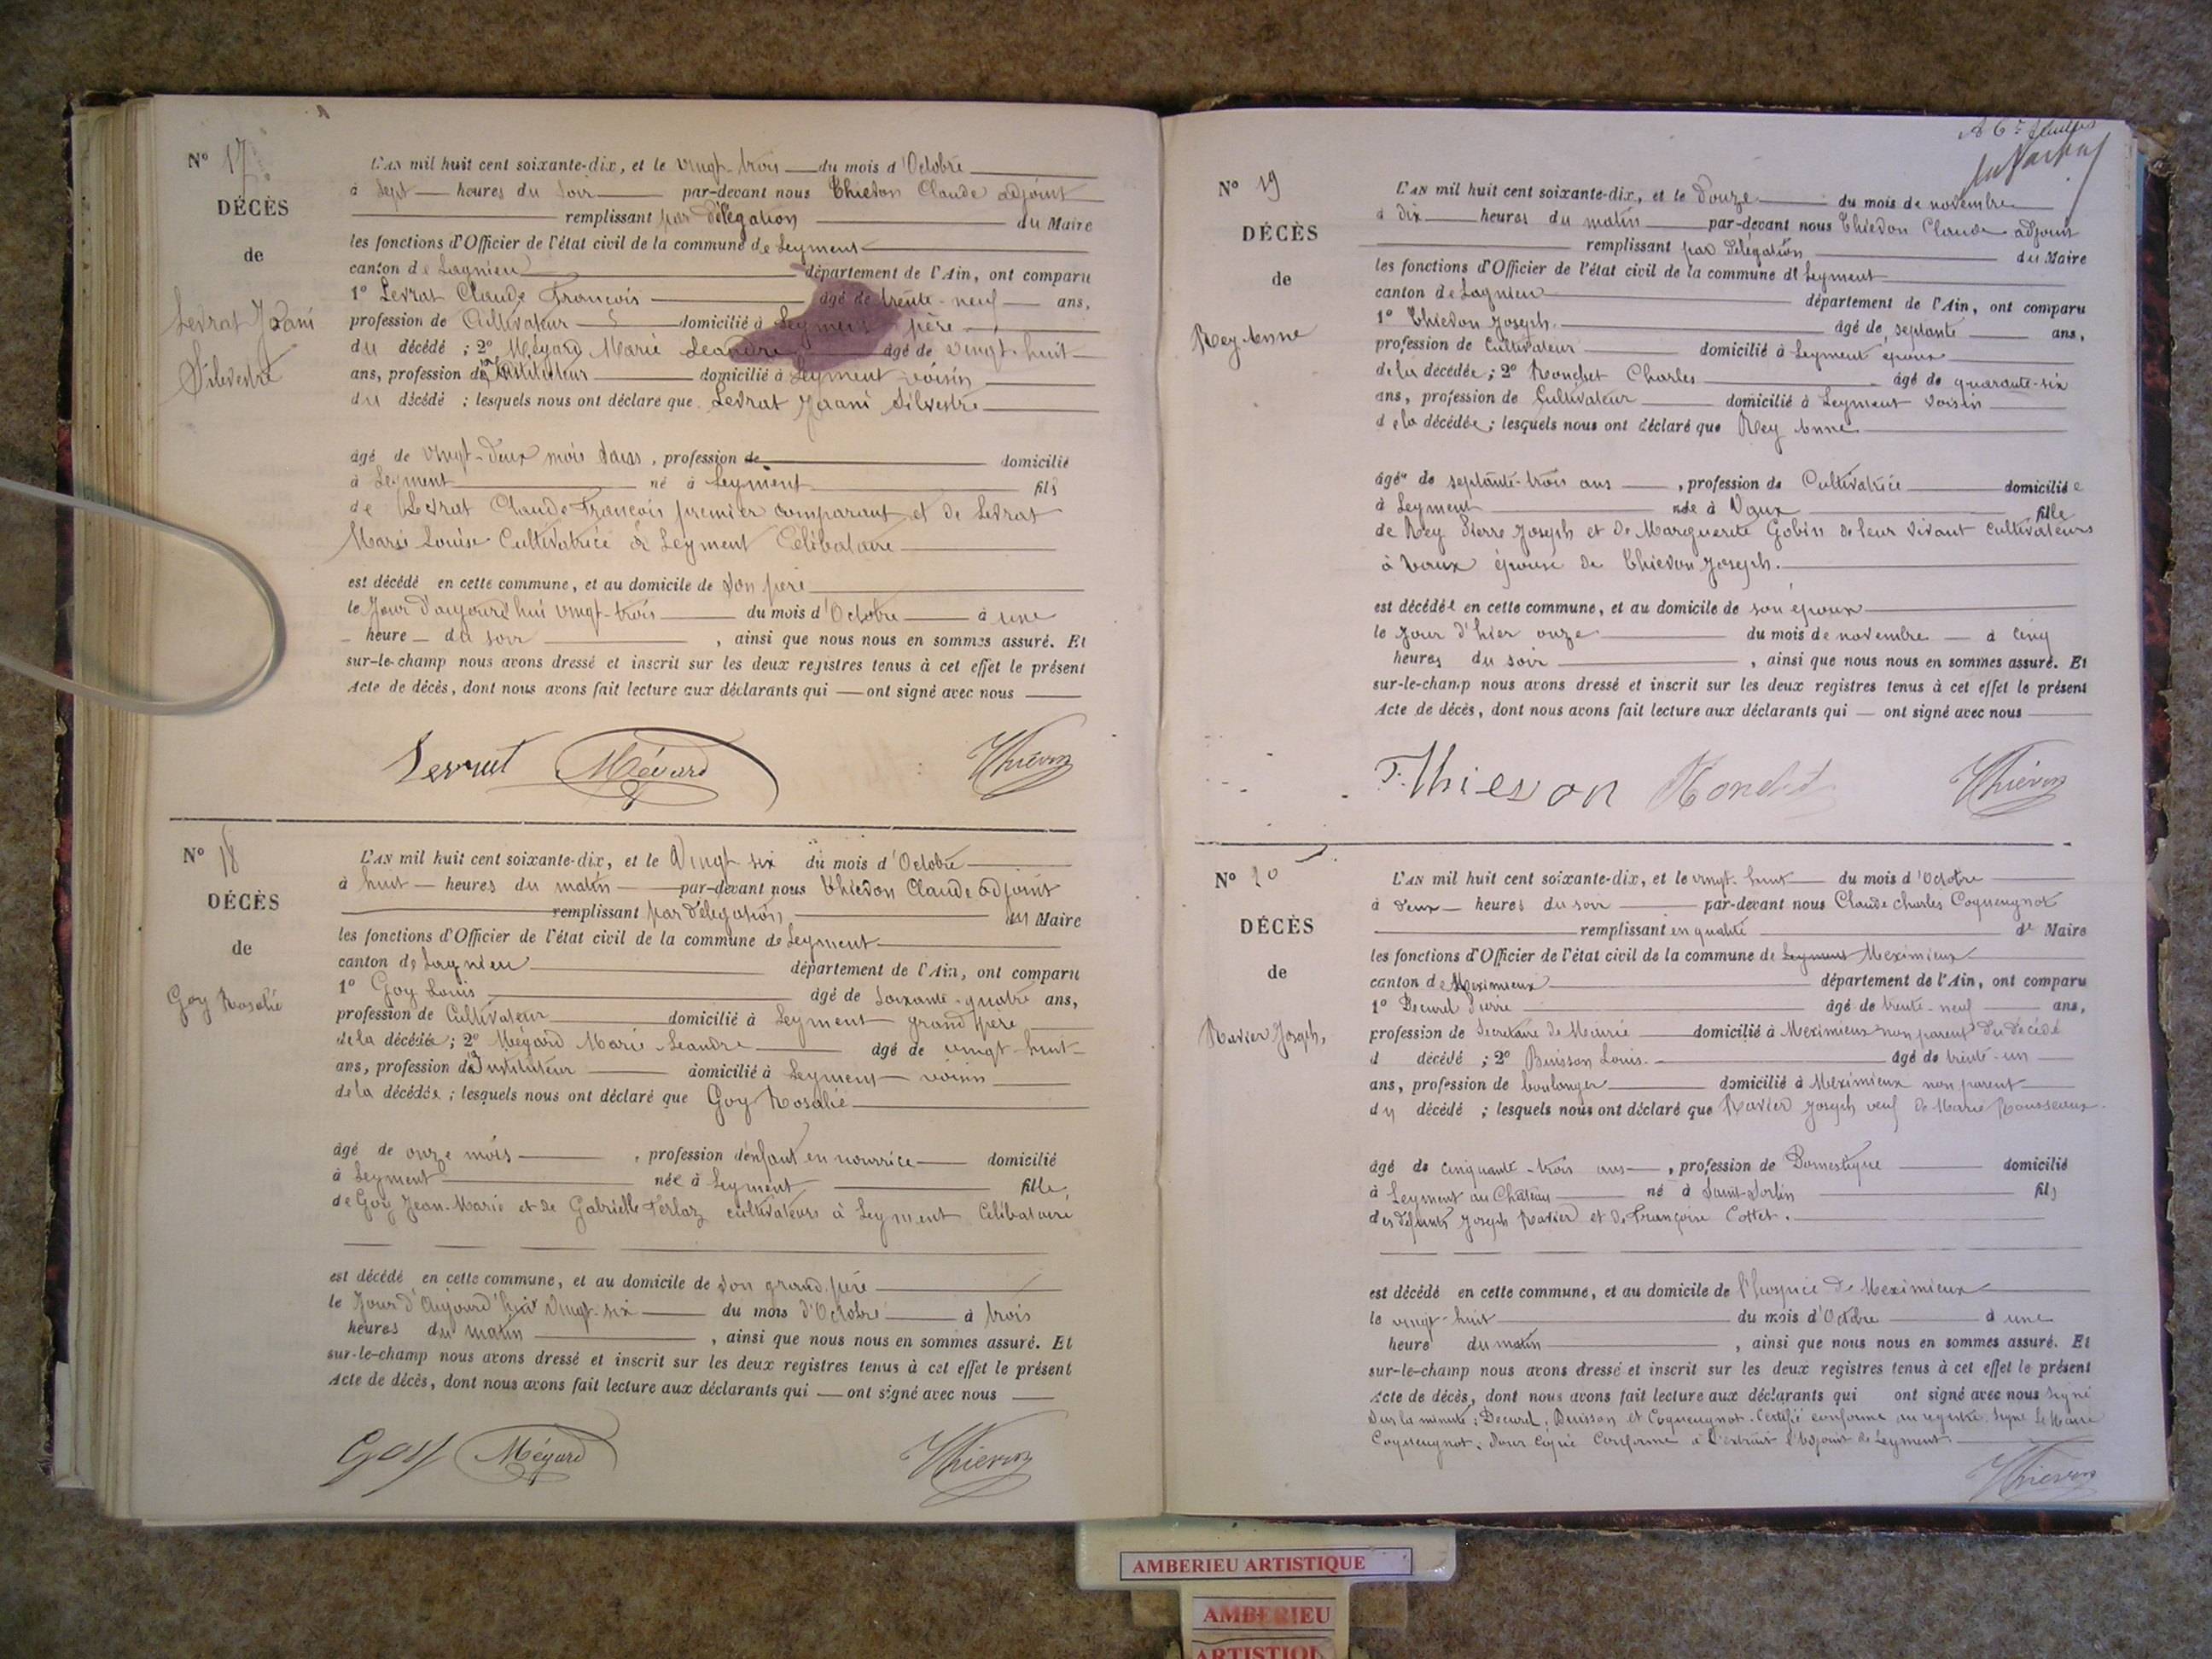 N° 17
DÉCÈS
de
Levrat Joani
Silvestre
L'AN mil huit cent soixante-dix, et le vingt-trois du mois d'Octobre
à sept heures du soir par-devant nous Thievon Claude adjoint
remplissant par délégation du Maire
les fonctions d'Officier de l'état civil de la commune de Leyment
canton de Lagnieu département de l'Ain, ont comparu
1° Levrat Claude François âgé de trente-neuf ans,
profession de Cultivateur domicilié à Leyment père
du décédé ; 2° Mégard Marie Leandre âgé de vingt-huit
ans, profession d'Instituteur domicilié à Leyment voisin
du décédé ; lesquels nous ont déclaré que Levrat Joani Silvestre
âgé de vingt-deux mois, profession de domicilié
à Leyment né à Leyment fils
de Levrat Claude François premier comparant et de Levrat
Marie Louise Cultivatrice à Leyment Célibataire
est décédé en cette commune, et au domicile de son père
le Jour d'aujourd'hui vingt-trois du mois d'Octobre à une
heure du soir, ainsi que nous nous en sommes assuré. Et
sur-le-champ nous avons dressé et inscrit sur les deux registres tenus à cet effet le présent
Acte de décès, dont nous avons fait lecture aux déclarants qui ont signé avec nous
Levrat Mégard Thievon
N° 18
DÉCÈS
de
Goy Rosalie
L'AN mil huit cent soixante-dix, et le Vingt six du mois d'Octobre
à huit heures du matin par-devant nous Thievon Claude adjoint
remplissant par délégation du Maire
les fonctions d'Officier de l'état civil de la commune de Leyment
canton de Lagnieu département de l'Ain, ont comparu
1° Goy Louis âgé de soixante-quatre ans,
profession de Cultivateur domicilié à Leyment grand père
de la décédée ; 2° Mégard Marie Leandre âgé de vingt-huit
ans, profession d'Instituteur domicilié à Leyment voisin
de la décédée ; lesquels nous ont déclaré que Goy Rosalie
âgé de onze mois, profession d'enfant en nourrice domicilié
à Leyment née à Leyment fille
de Goy Jean-Marie et de Gabrielle Ferlaz cultivateurs à Leyment Célibataire
est décédé en cette commune, et au domicile de son grand père
le Jour d'Aujourd'hui vingt-six du mois d'Octobre à trois
heures du matin, ainsi que nous nous en sommes assuré. Et
sur-le-champ nous avons dressé et inscrit sur les deux registres tenus à cet effet le présent
Acte de décès, dont nous avons fait lecture aux déclarants qui ont signé avec nous
Goy Mégard Thievon
N° 19
DÉCÈS
de
Rey Anne
L'AN mil huit cent soixante-dix, et le Douze du mois de novembre
à dix heures du matin par-devant nous Thievon Claude adjoint
remplissant par délégation du Maire
les fonctions d'Officier de l'état civil de la commune de Leyment
canton de Lagnieu département de l'Ain, ont comparu
1° Thievon Joseph âgé de septante ans,
profession de Cultivateur domicilié à Leyment époux
de la décédée ; 2° Ronchet Charles âgé de quarante-six
ans, profession de Cultivateur domicilié à Leyment voisin
de la décédée ; lesquels nous ont déclaré que Rey Anne
âgée de septante-trois ans, profession de Cultivatrice domiciliée
à Leyment née à Vaux fille
de Rey Pierre Joseph et de Marguerite Gobin de leur vivant cultivateurs
à Vaux épouse de Thievon Joseph.
est décédée en cette commune, et au domicile de son époux
le Jour d'hier onze du mois de novembre à cinq
heures du soir, ainsi que nous nous en sommes assuré. Et
sur-le-champ nous avons dressé et inscrit sur les deux registres tenus à cet effet le présent
Acte de décès, dont nous avons fait lecture aux déclarants qui ont signé avec nous
Thievon Thievon
N° 20
DÉCÈS
de
Ravier Joseph,
L'AN mil huit cent soixante-dix, et le vingt-huit du mois d'Octobre
à deux heures du soir par-devant nous Claude Charles Coqueugnot
remplissant en qualité de Maire
les fonctions d'Officier de l'état civil de la commune de Leyment Meximieux
canton de Meximieux département de l'Ain, ont comparu
1° Decurel Pierre âgé de trente-neuf ans,
profession de Secrétaire de Mairie domicilié à Meximieux non parent du décédé
d décédé ; 2° Buisson Louis. âgé de trente-un
ans, profession de boulanger domicilié à Meximieux non parent
du décédé ; lesquels nous ont déclaré que Ravier Joseph veuf de Marie Rousseaux
âgé de cinquante-trois ans, profession de Domestique domicilié
à Leyment au Château né à Saint-Sorlin fils
des défunts Joseph Ravier et de Françoise Cottet.
est décédé en cette commune, et au domicile de l'hospice de Meximieux
le vingt-huit du mois d'Octobre à une
heure du matin, ainsi que nous nous en sommes assuré. Et
sur-le-champ nous avons dressé et inscrit sur les deux registres tenus à cet effet le présent
Acte de décès, dont nous avons fait lecture aux déclarants qui ont signé avec nous signé
sur la minute : Decurel, Buisson et Coqueugnot. Certifié conforme au registre. Signé Le Maire
Coqueugnot. Pour copie conforme à l'extrait l'Adjoint de Leyment.
Thievon
AMBERIEU ARTISTIQUE
AMBERIEU
ARTISTIQ